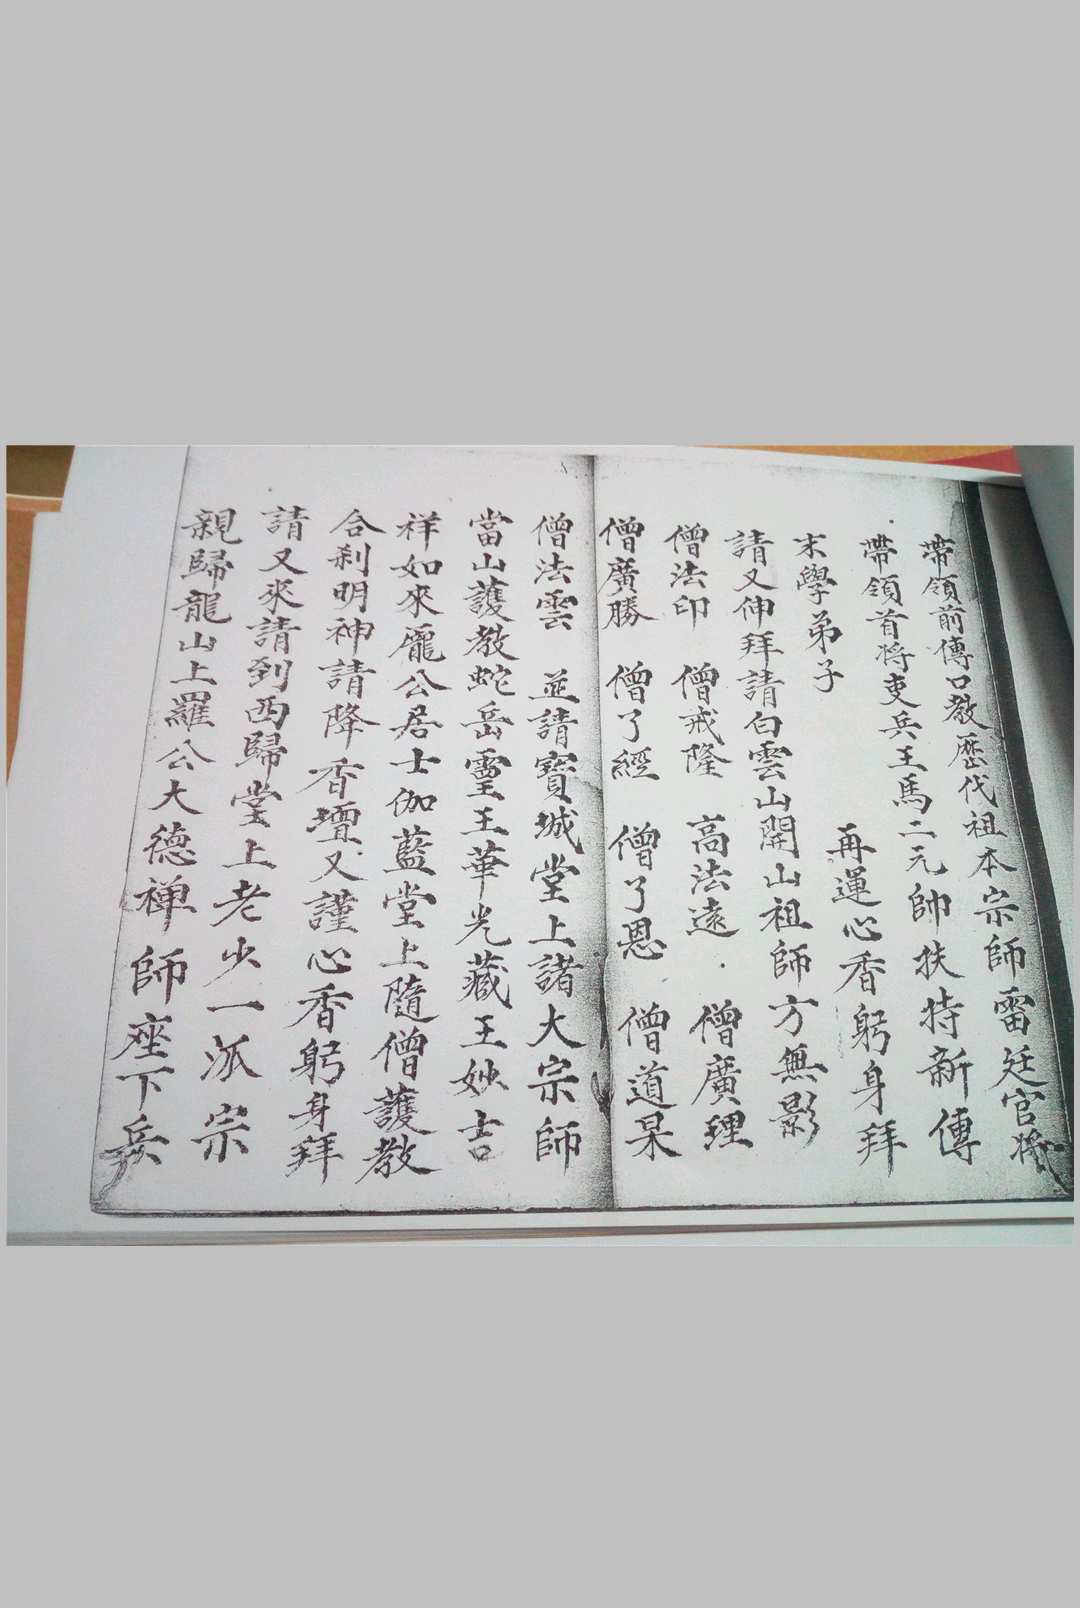 帶領前傳口教歷代祖本宗師雷廷官將
帶領首将吏兵王馬二元帥扶持新傳
末學弟子 再運心香躬身拜
請又伸拜請白雲山開山祖師方無影
僧法印 僧戒隆 高法遠 僧廣理
僧廣勝 僧了經 僧了恩 僧道杲
僧法雲 並請寶城堂上諸大宗師
當山護教蛇岳靈王華光藏王妙吉
祥如來龐公居士伽藍堂上隨僧護教
合刹明神請降香壇又謹心香躬身拜
請又來請到西歸堂上老少一派宗
親歸龍山上羅公大德禅師座下兵